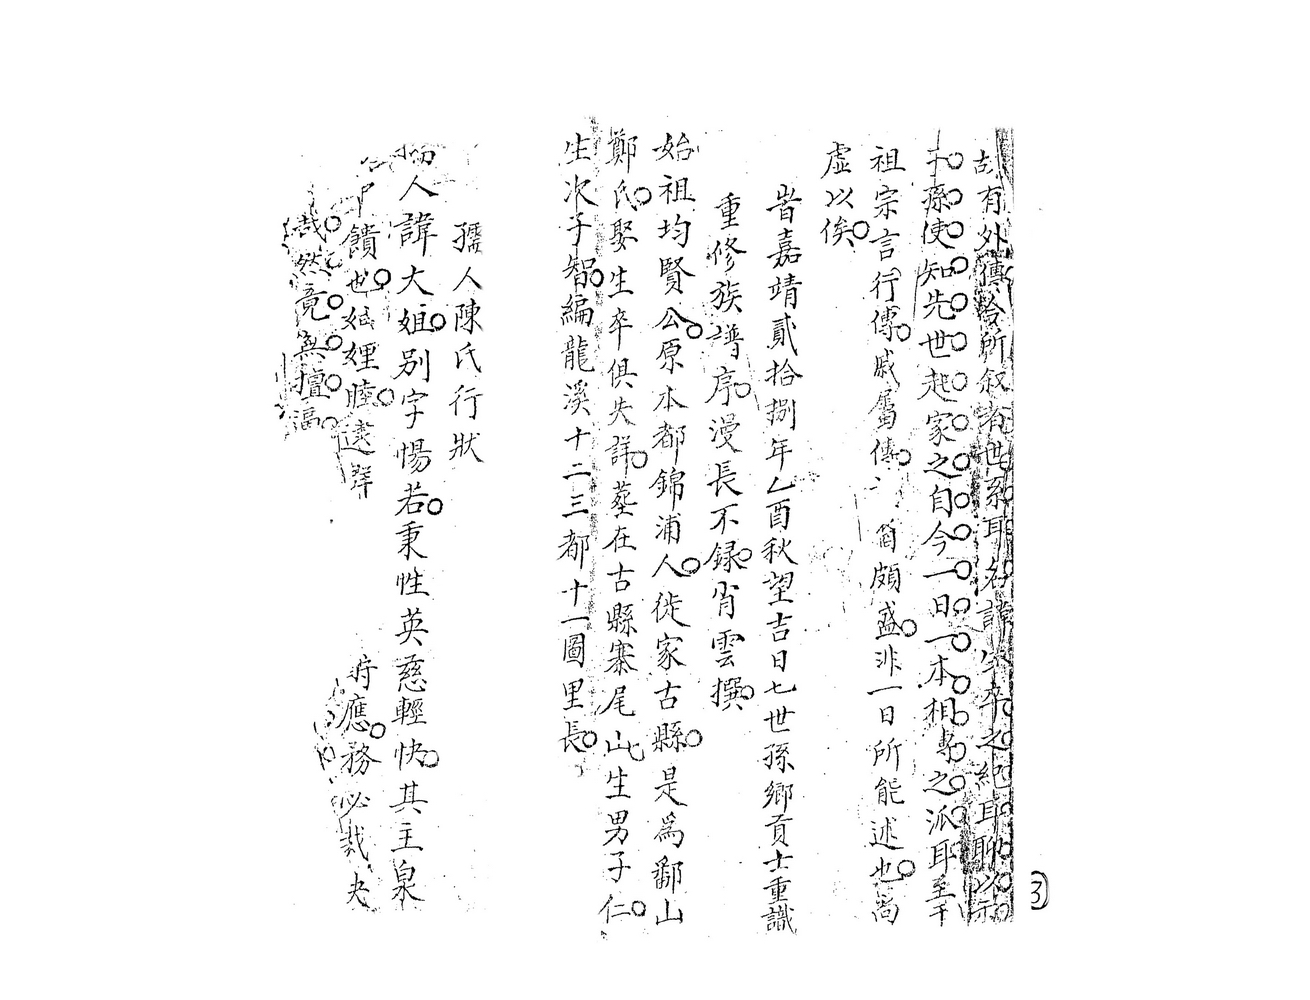 故有外傳於所叙者世系耳名諱生卒之紀耳聊以示
子孫使知先世起家之自今一日一本相專之派耳至于
祖宗言行傳戚屬傳 簡頗盛非一日所能述也尚
虛以俟
旹嘉靖貳拾捌年乙酉秋望吉日七世孫鄉貢士重識
重修族譜序漫長不録肯雲撰
始祖均賢公原本都錦浦人徙家古縣是為鄱山
鄭氏娶生卒俱失詳葬在古縣寨尾山生男子仁
生次子智編龍溪十二三都十一圖里長
孺人陳氏行狀
人諱大姐别字惕若秉性英慈輕快其主泉
饋也妯娌睦遠 應務必裁夬
哉然竟無擅
3